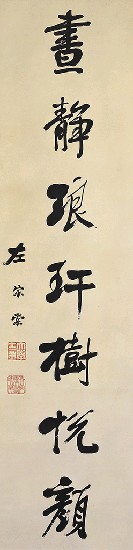 畫靜琅玕樹悅顏
左宗棠